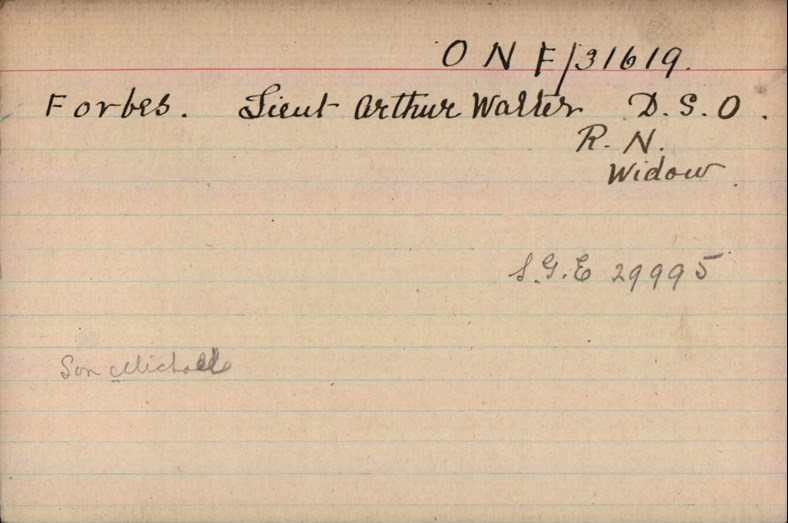 O N F/31619.
Forbes. Lieut Arthur Walter D.S.O.
R.N.
Widow
S.G.E 29995
Son Michael